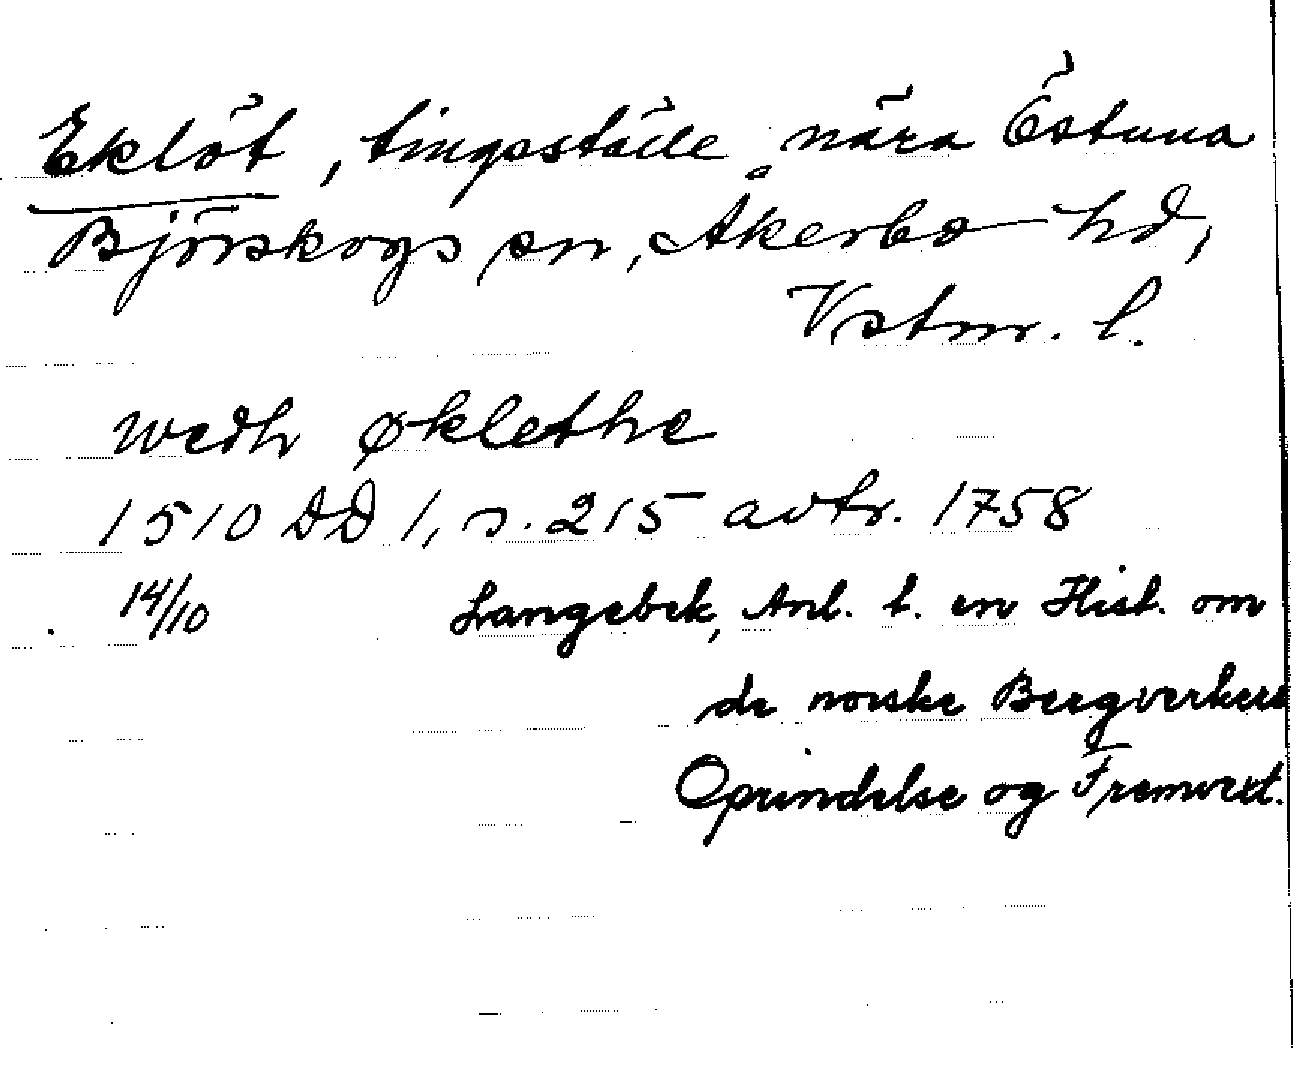 Eklöt, tingsställe nära Östuna
Björskogs sn, Åkerbo hd,
Vstm. l.
wedh øklethe
1510 DD 1, s. 215 avtr. 1758
14/10 Langebek, Anl. t. en Hist. om
de norske Bergverkers
Oprindelse og Fremvext.